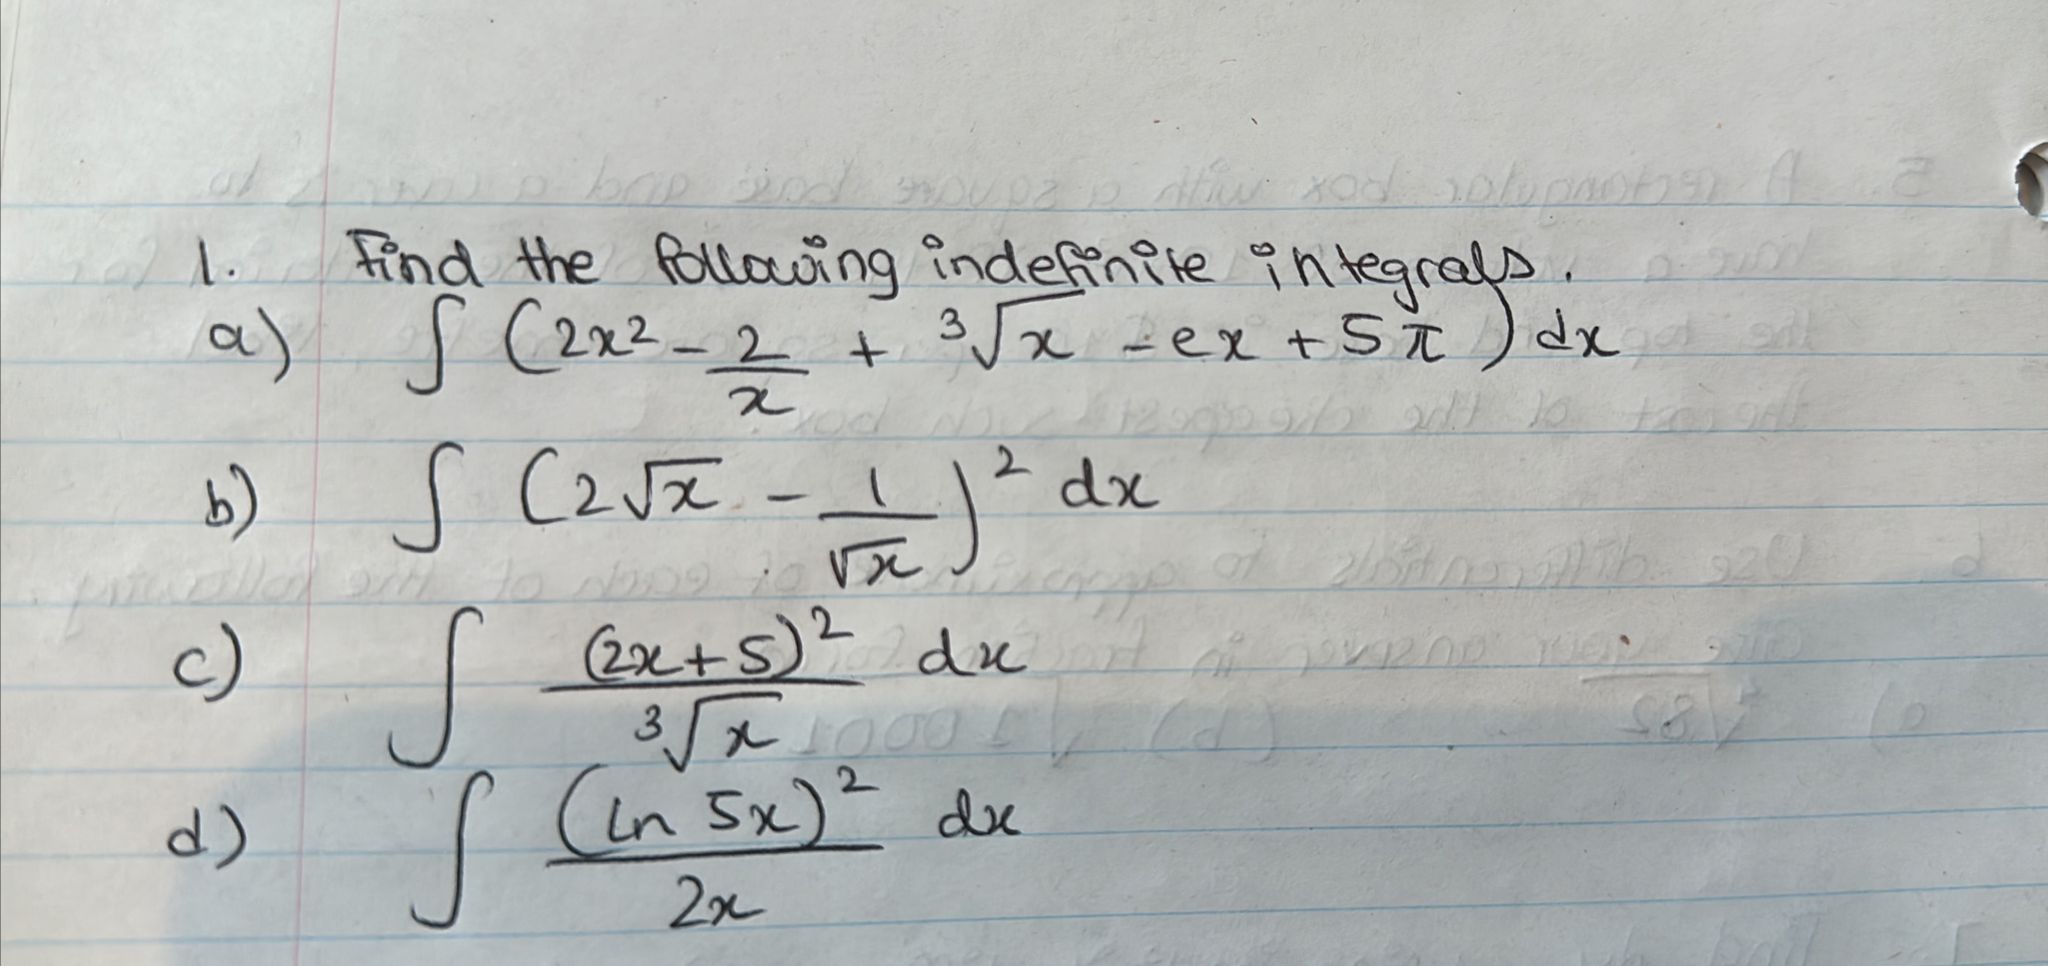 1. Find the following indefinite integrals.
a) ∫ (2x² - 2/x + ³√x - ex + 5π) dx
b) ∫ (2√x - 1/√x)² dx
c) ∫ (2x+5)²/³√x dx
d) ∫ (ln 5x)²/2x dx